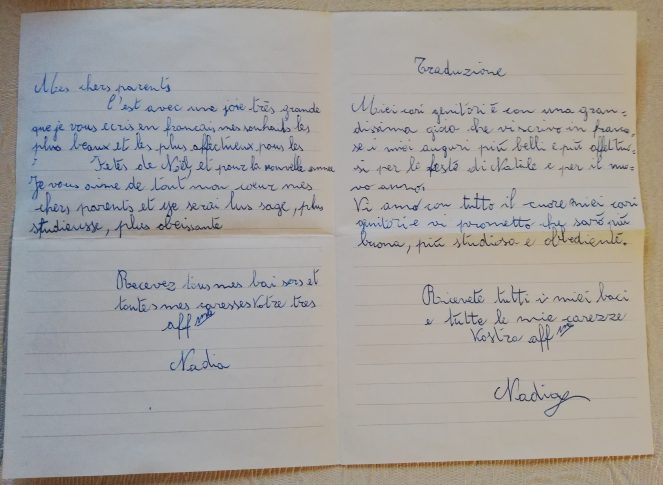 Mes chers parents
C'est avec une joie très grande
que je vous ecris en français mes souhaits les
plus beaux et les plus affectueux pour les
Fetes de Noëly et pour la nouvelle annee
Je vous aime de tout mon cœur mes
chers parents et je serai lus sage, plus
studieusse, plus obeissante
Recevez tous mes bai sers et
toutes mes caresses Votre tres
aff me
Nadia
Traduzione
Miei cari genitori è con una gran=
dissima gioia che vi scrivo in france=
se i miei auguri più belli e più affettuo=
si per le feste di Natale e per il nuo=
vo anno.
Vi amo con tutto il cuore miei cari
genitori e vi prometto che sarò più
buona, più studiosa e obbediente.
Ricevete tutti i miei baci
e tutte le mie carezze
Vostra aff me
Nadia